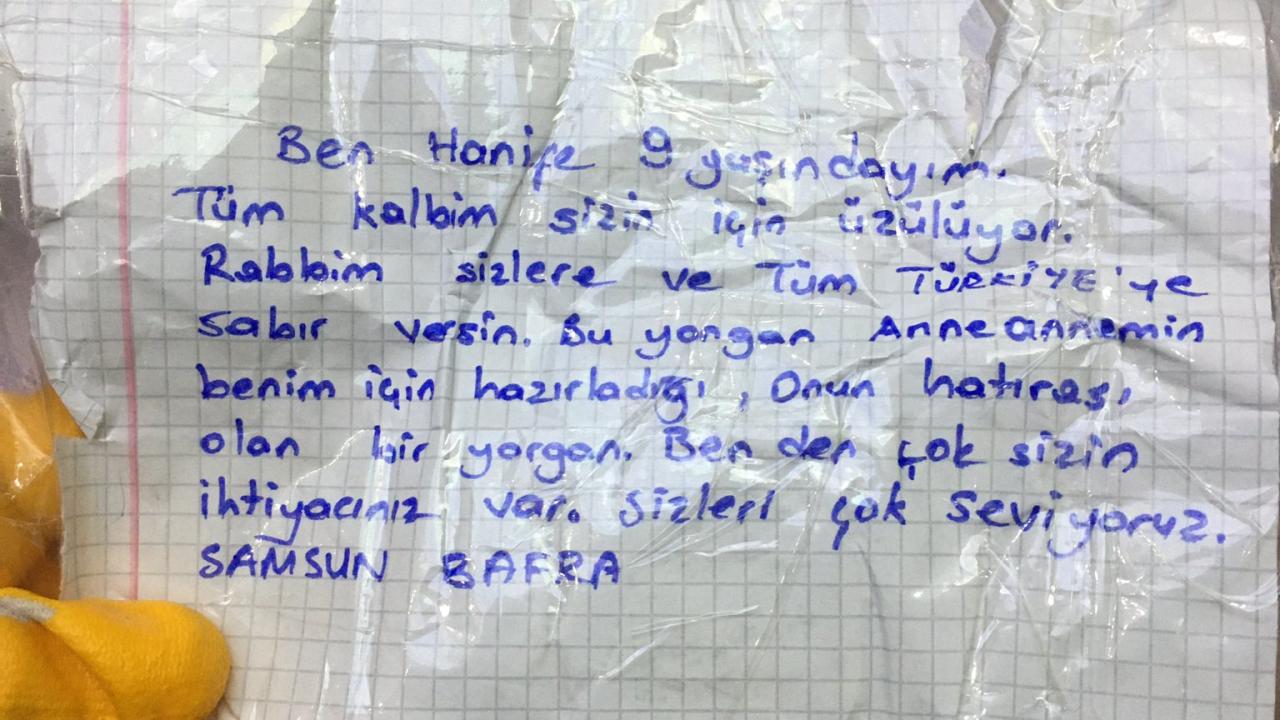 Ben Hanife 9 yaşındayım.
Tüm kalbim sizin için üzülüyor.
Rabbim sizlere ve Tüm TÜRKİYE'ye
sabır versin. Bu yorgan Anneannemin
benim için hazırladığı, Onun hatırası
olan bir yorgan. Ben den çok sizin
ihtiyacınız var. Sizleri çok seviyoruz.
SAMSUN BAFRA